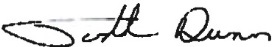 Scott Dunn